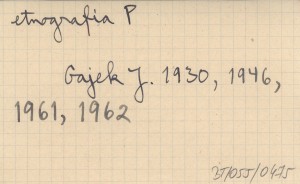 etnografia P
Gajek J. 1930, 1946,
1961, 1962
37/055/0475